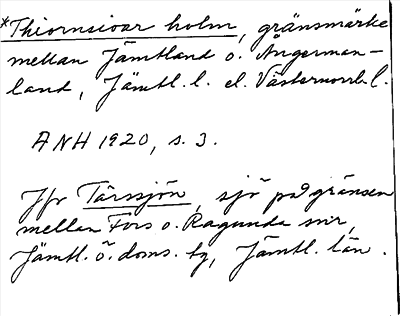 *Thiornsioar holm, gränsmärke
mellan Jämtland o. Ångerman-
land, Jämtl. l. el. Västernorrl. l.
ANH 1920, s. 3.
Jfr Tärssjön, sjö på gränsen
mellan Fors o. Ragunda snr,
Jämtl. ö. doms. tg, Jämtl. län.